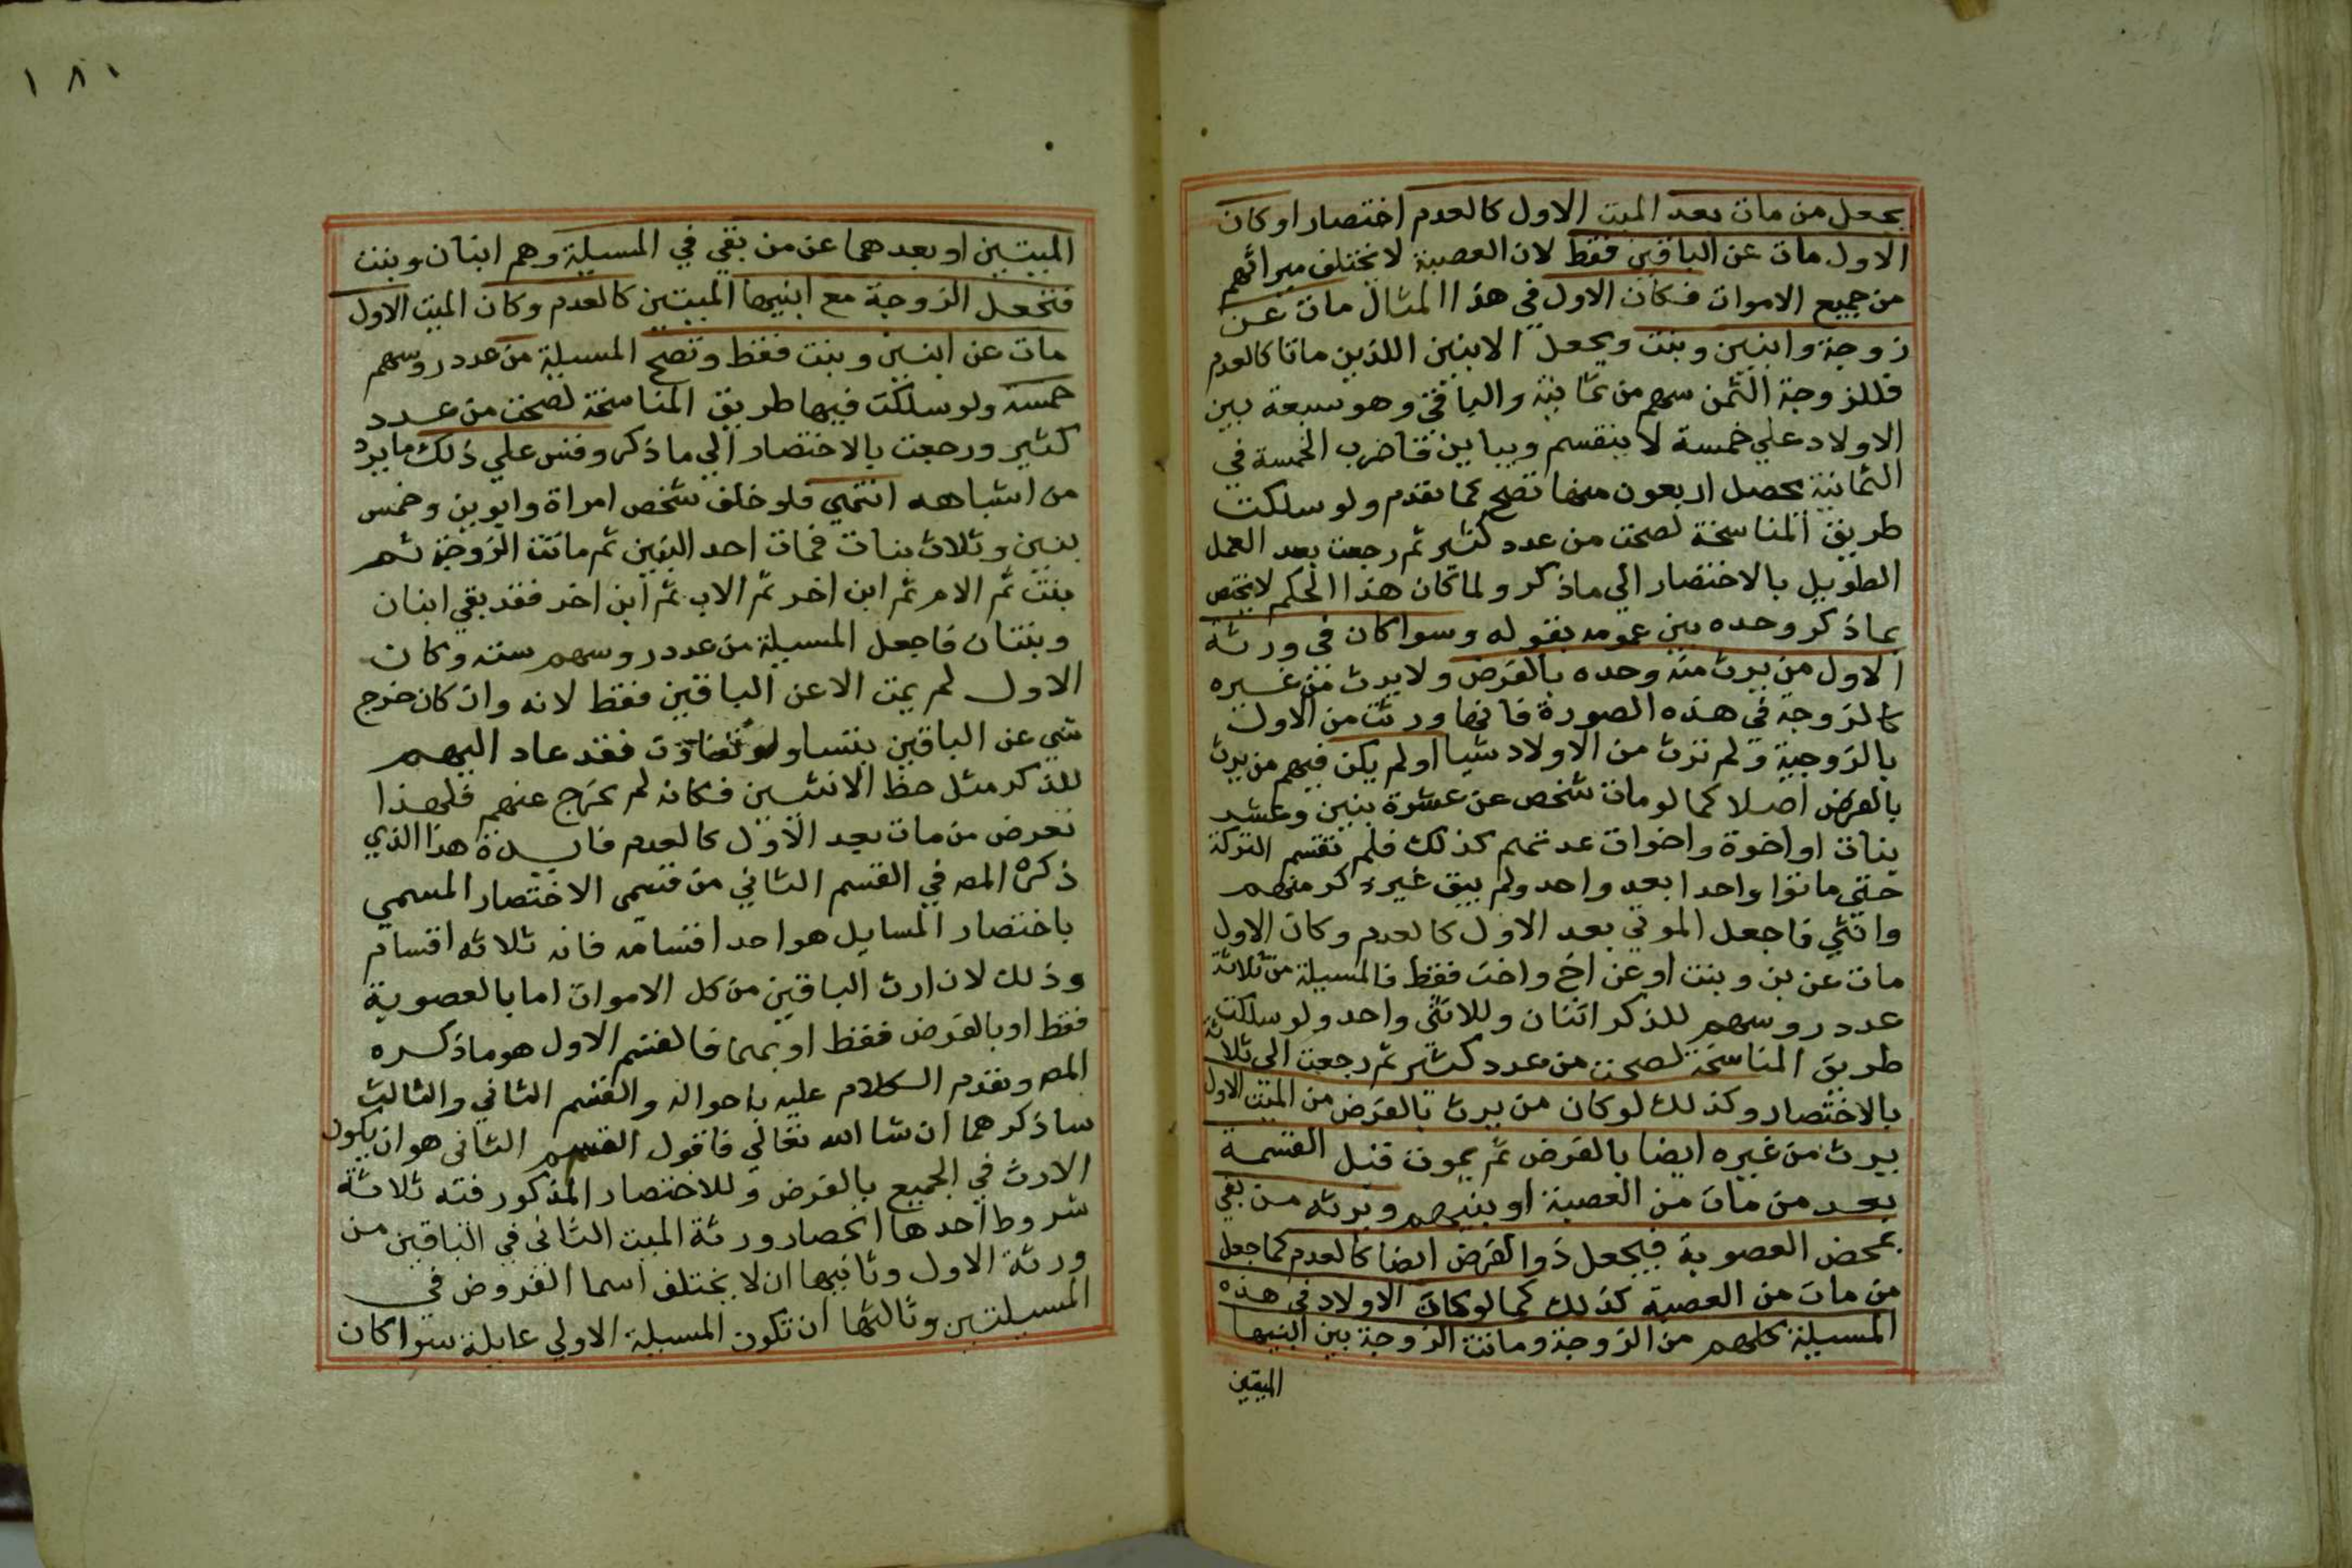 يجعل من مات بعد الميت الاول كالعدم اختصارا وكان
الاول مات عن الباقين فقط لان العصبة لا يختلف ميراثهم
من جميع الاموات فكان الاول في هذا المثال مات عن
زوجة وابنين وبنت ويجعل الابنين اللذين ماتا كالعدم
فللزوجة الثمن سهم من ثمانية والباقي وهو سبعة بين
الاولاد علي خمسة لا ينقسم ويباين فاضرب الخمسة في
الثمانية يحصل اربعون منها تصح كما تقدم ولو سلكت
طريق المناسخة لصحت من عدد كثير ثم رجعت بعد العمل
الطويل بالاختصار الي ما ذكر ولما كان هذا الحكم لا يختص
بما ذكر وحده بين عمومه بقوله وسوا كان في ورثة
الاول من يرث منه وحده بالفرض ولا يرث من غيره
كالزوجة في هذه الصورة فانها ورثت من الاول
بالزوجية ولم ترث من الاولاد شيا او لم يكن فيهم من يرث
بالفرض اصلا كما لو مات شخص عن عشرة بنين وعشر
بنات او اخوة واخوات عدتهم كذلك فلم تقتسم التركة
حتي ماتوا واحدا بعد واحد ولم يبق غير ذكر منهم
وانثي فاجعل الموتي بعد الاول كالعدم وكان الاول
مات عن بن وبنت او عن اخ واخت فقط فالمسيلة من ثلاثة
عدد روسهم للذكر اثنان وللانثي واحد ولو سلكت
طريق المناسخة لصحت من عدد كثير ثم رجعت الي ثلاثة
بالاختصار وكذلك لو كان من يرث بالفرض من الميت الاول
يرث من غيره ايضا بالفرض ثم يموت قبل القسمة
بعد من مات من العصبة او بينهم ويرثه من بقي
بمحض العصوبة فيجعل ذو الفرض ايضا كالعدم كما جعل
من مات من العصبة كذلك كما لو كان الاولاد في هذه
المسيلة كلهم من الزوجة وماتت الزوجة بين ابنيها
الميتين
١٨١
الميتين او بعدهما عن من بقي في المسيلة وهم ابنان وبنت
فتجعل الزوجة مع ابنيها الميتين كالعدم وكان الميت الاول
مات عن ابنين وبنت فقط وتصح المسيلة من عدد روسهم
خمسة ولو سلكت فيها طريق المناسخة لصحت من عدد
كثير ورجعت بالاختصار الي ما ذكر وقس علي ذلك ما يرد
من اشباهه انتهي فلو خلف شخص امراة وابوين وخمس
بنين وثلاث بنات فمات احد البنين ثم ماتت الزوجة ثم
بنت ثم الام ثم ابن اخر ثم الاب ثم ابن اخر فقد بقي ابنان
وبنتان فاجعل المسيلة من عدد روسهم سته وكان
الاول لم يمت الا عن الباقين فقط لانه وان كان خرج
شي عن الباقين بتساو او تفاوت فقد عاد اليهم
للذكر مثل حظ الانثيين فكانه لم يخرج عنهم فلهذا
نفرض من مات بعد الاول كالعدم فايدة هذا الذي
ذكره المص في القسم الثاني من قسمي الاختصار المسمي
باختصار المسايل هو احد اقسامه فانه ثلاثه اقسام
وذلك لان ارث الباقين من كل الاموات اما بالعصوبة
فقط او بالفرض فقط او بهما فالقسم الاول هو ما ذكره
المص وتقدم الكلام عليه باحواله والقسم الثاني والثالث
ساذكرهما ان شا الله تعالي فاقول القسم الثاني هو ان يكون
الارث في الجميع بالفرض وللاختصار المذكور فيه ثلاثة
شروط احدها انحصار ورثة الميت الثاني في الباقين من
ورثة الاول وثانيها ان لا يختلف اسما الفروض في
المسيلتين وثالثها ان تكون المسيلة الاولي عايلة سوا كان